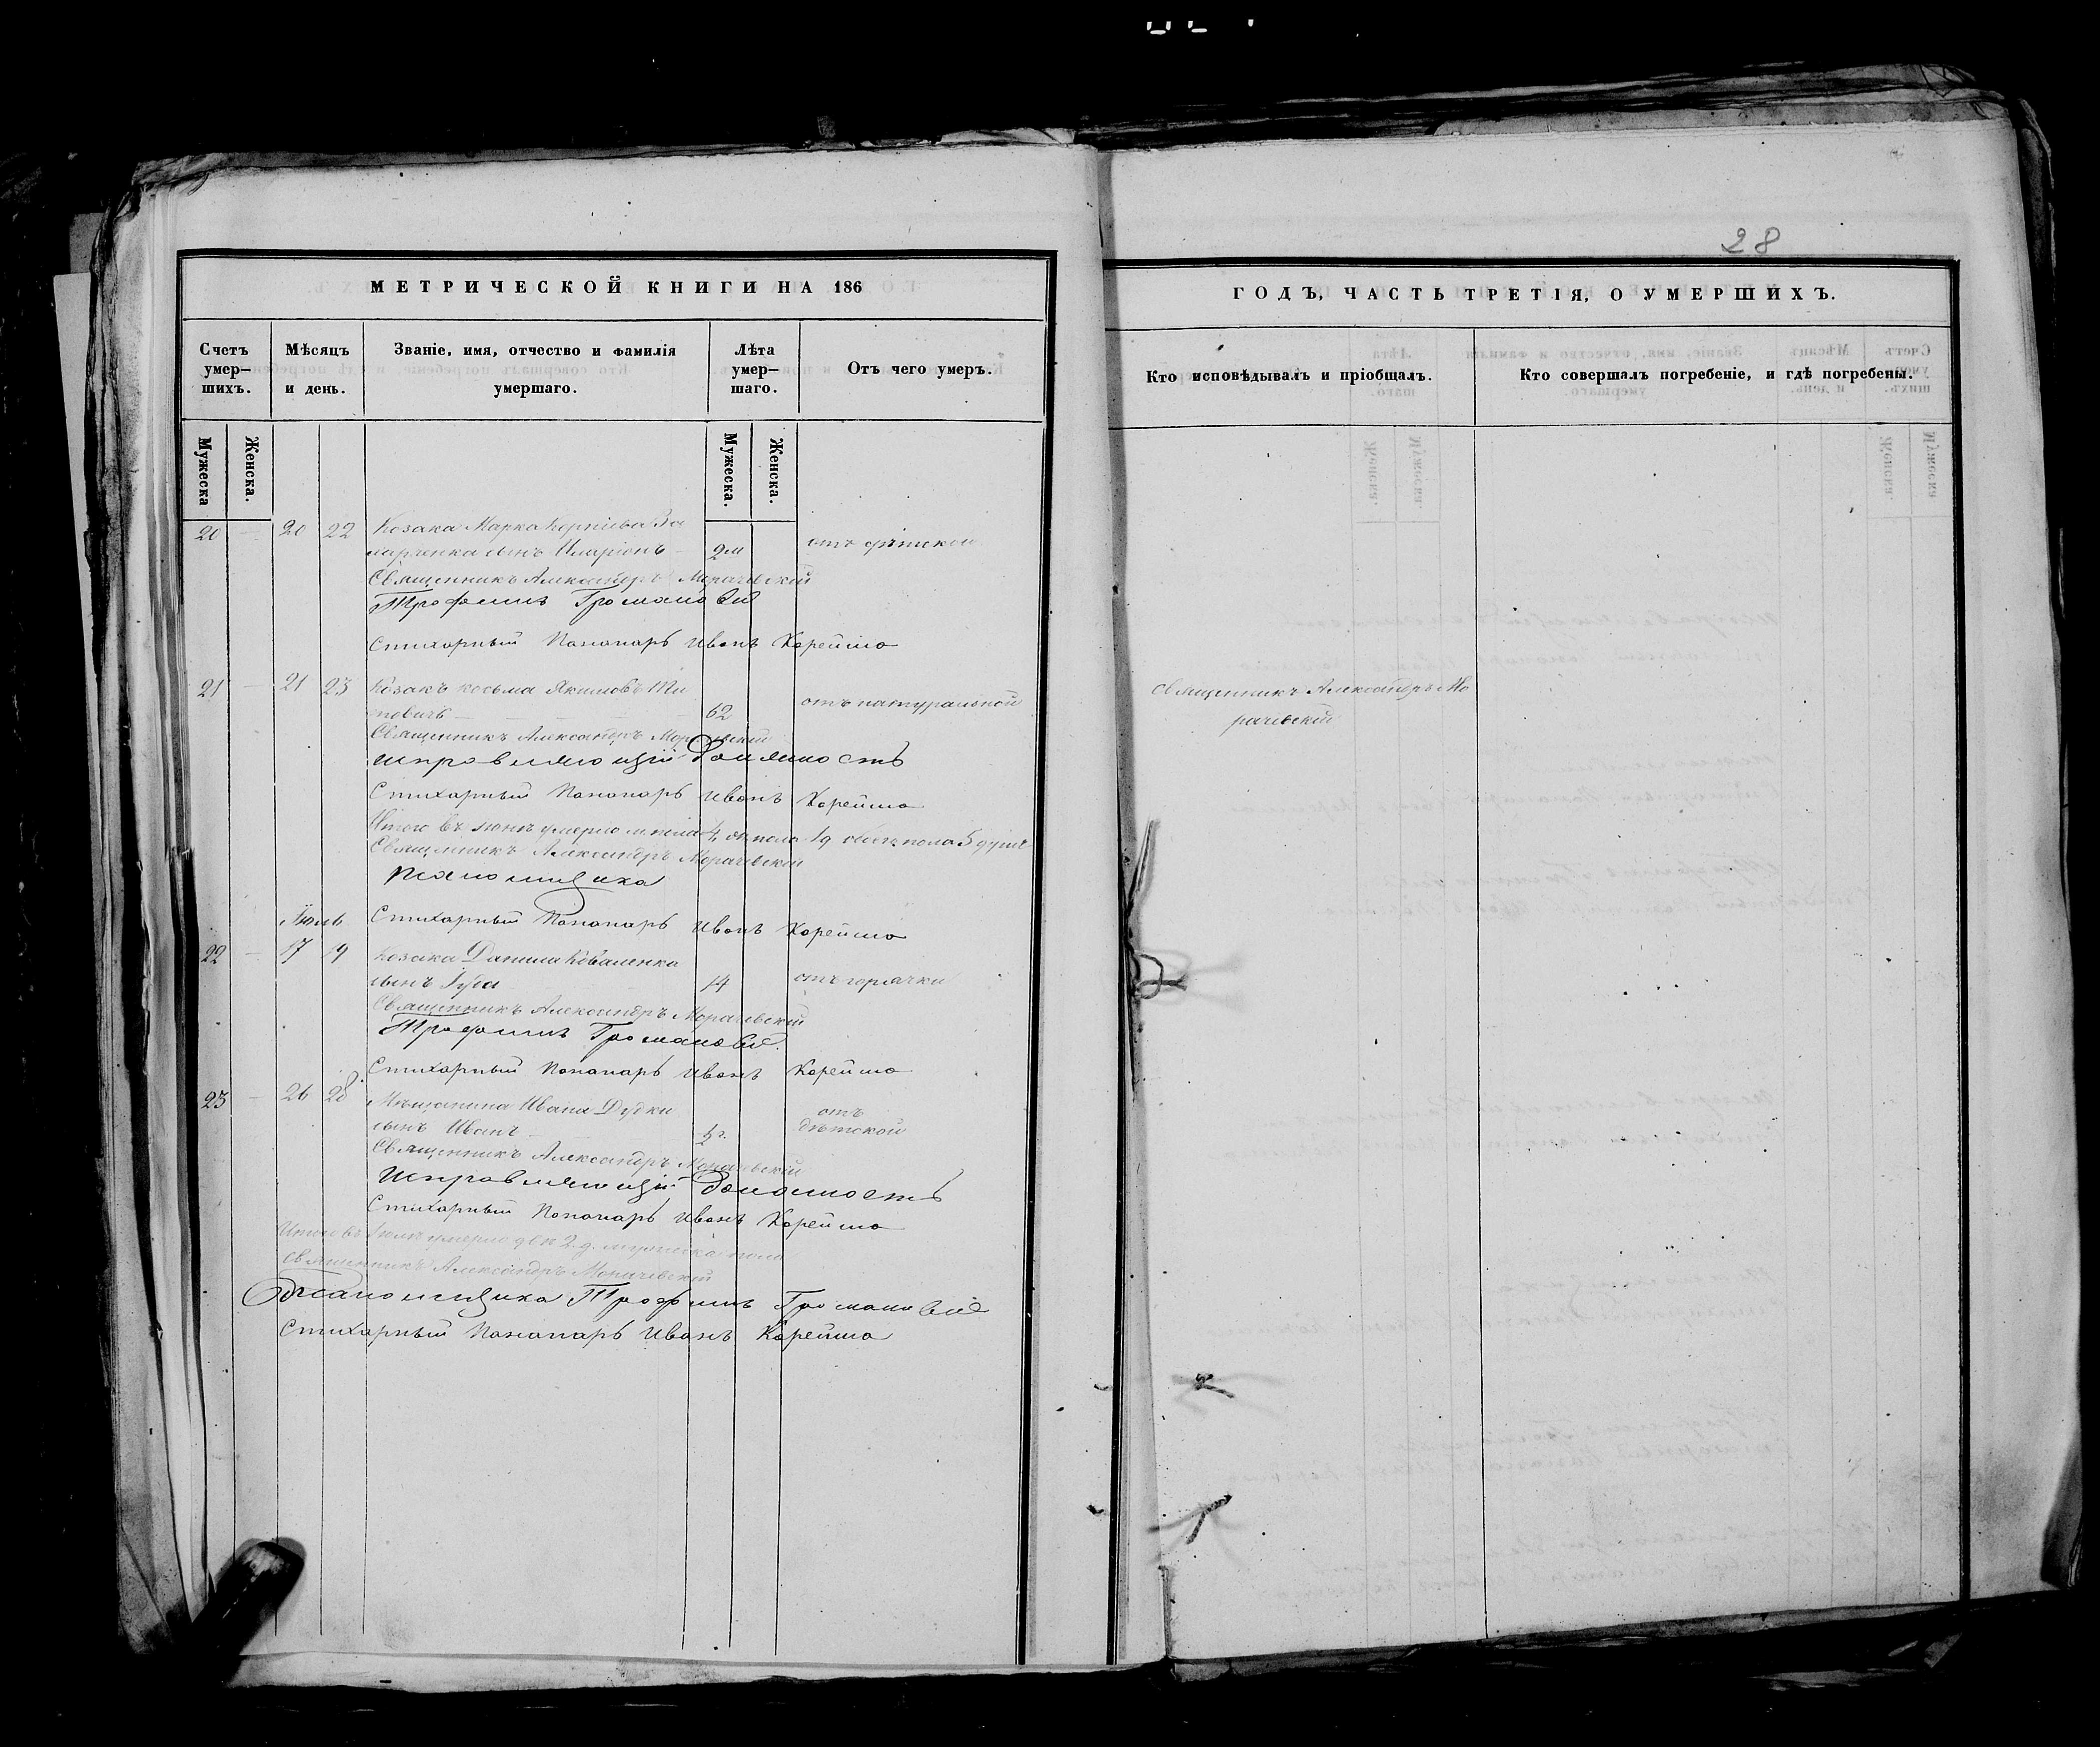 28
МЕТРИЧЕСКОЙ КНИГИ НА 186
Счетъ умер-шихъ.
Мѣсяцъ и день.
Званіе, имя, отчество и фамилія умершаго.
Лѣта умер-шаго.
Отъ чего умеръ.
Мужеска
Женска.
Мужеска.
Женска.
20 — 20 22 Козака Марка Корніева За
сынъ Иларіонъ — 2 м отъ дѣтской
Священникъ Александръ Морачевскій
Трофимъ Громановъ
Стихарный Пономарь Иванъ Корейша
21 — 21 23 Козакъ Косьма Якимовъ Ти
повичъ — 62 отъ натуральной
Священникъ Александръ Морачевскій
исправляющій Должность
Стихарный Пономарь Иванъ Корейша
Итого въ Іюнѣ умерло м. пола 4, ж. пола 1, обоего пола 5 душъ
Священникъ Александръ Морачевскій
Стихарный Пономарь Иванъ Корейша
Іюль
22 — 17 19 Козака Данила Коваленка
сынъ 14 отъ горячки
Священникъ Александръ Морачевскій
Трофимъ
Стихарный Пономарь Иванъ Корейша
23 — 26 28 Мѣщанина Ивана Дудки
сынъ Иванъ отъ дѣтской
Священникъ Александръ Морачевскій
Исправляющій Должность
Стихарный Пономарь Иванъ Корейша
Итого въ Іюлѣ умерло двѣ 2 д. мужеска пола
Священникъ Александръ Морачевскій
Трофимъ
Стихарный Пономарь Иванъ Корейша
ГОДЪ, ЧАСТЬ ТРЕТІЯ, О УМЕРШИХЪ.
Кто исповѣдывалъ и пріобщалъ.
Кто совершалъ погребеніе, и гдѣ погребены.
Священникъ Александръ Мо
рачевскій